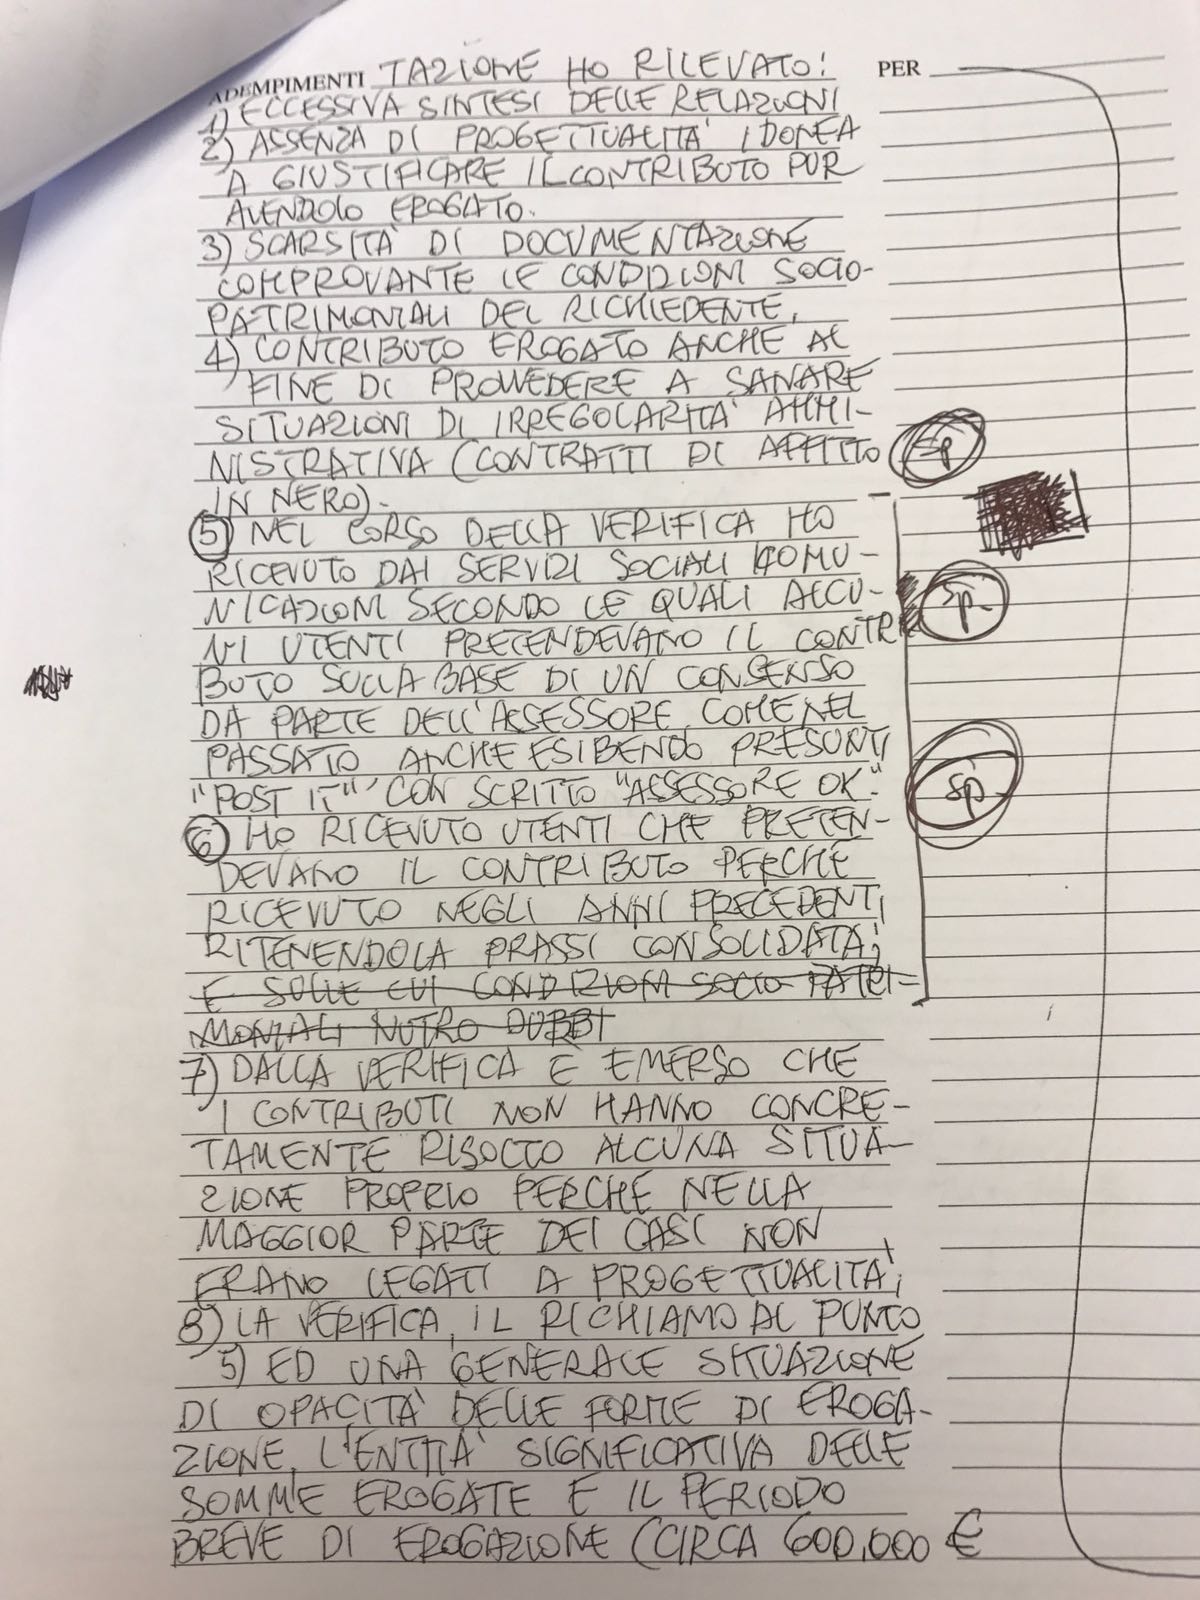 ADEMPIMENTI TAZIONE HO RILEVATO: PER
1) ECCESSIVA SINTESI DELLE RELAZIONI
2) ASSENZA DI PROGETTUALITA' IDONEA
A GIUSTIFICARE IL CONTRIBUTO PUR
AVENDOLO EROGATO.
3) SCARSITA' DI DOCUMENTAZIONE
COMPROVANTE LE CONDIZIONI SOCIO-
PATRIMONIALI DEL RICHIEDENTE,
4) CONTRIBUTO EROGATO ANCHE AL
FINE DI PROVVEDERE A SANARE
SITUAZIONI DI IRREGOLARITA' AMMI-
NISTRATIVA (CONTRATTI DI AFFITTO Sp
IN NERO).
5) NEL CORSO DELLA VERIFICA HO
RICEVUTO DAI SERVIZI SOCIALI COMU-
NICAZIONI SECONDO LE QUALI ALCU- Sp.
NI UTENTI PRETENDEVANO IL CONTRI
BUTO SULLA BASE DI UN CONSENSO
DA PARTE DELL'ASSESSORE COME NEL
PASSATO ANCHE ESIBENDO PRESUNTI
"POST IT" CON SCRITTO "ASSESSORE OK." Sp.
6) HO RICEVUTO UTENTI CHE PRETEN-
DEVANO IL CONTRIBUTO PERCHÉ
RICEVUTO NEGLI ANNI PRECEDENTI
RITENENDOLA PRASSI CONSOLIDATA;
E SULLE CUI CONDIZIONI SOCIO PATRI-
MONIALI NUTRO DUBBI
7) DALLA VERIFICA È EMERSO CHE
I CONTRIBUTI NON HANNO CONCRE-
TAMENTE RISOLTO ALCUNA SITUA-
ZIONE PROPRIO PERCHÉ NELLA
MAGGIOR PARTE DEI CASI NON
ERANO LEGATI A PROGETTUALITA',
8) LA VERIFICA, IL RICHIAMO AL PUNTO
5) ED UNA GENERALE SITUAZIONE
DI OPACITÀ DELLE FORME DI EROGA-
ZIONE, L'ENTITA' SIGNIFICATIVA DELLE
SOMME EROGATE E IL PERIODO
BREVE DI EROGAZIONE (CIRCA 600,000 €